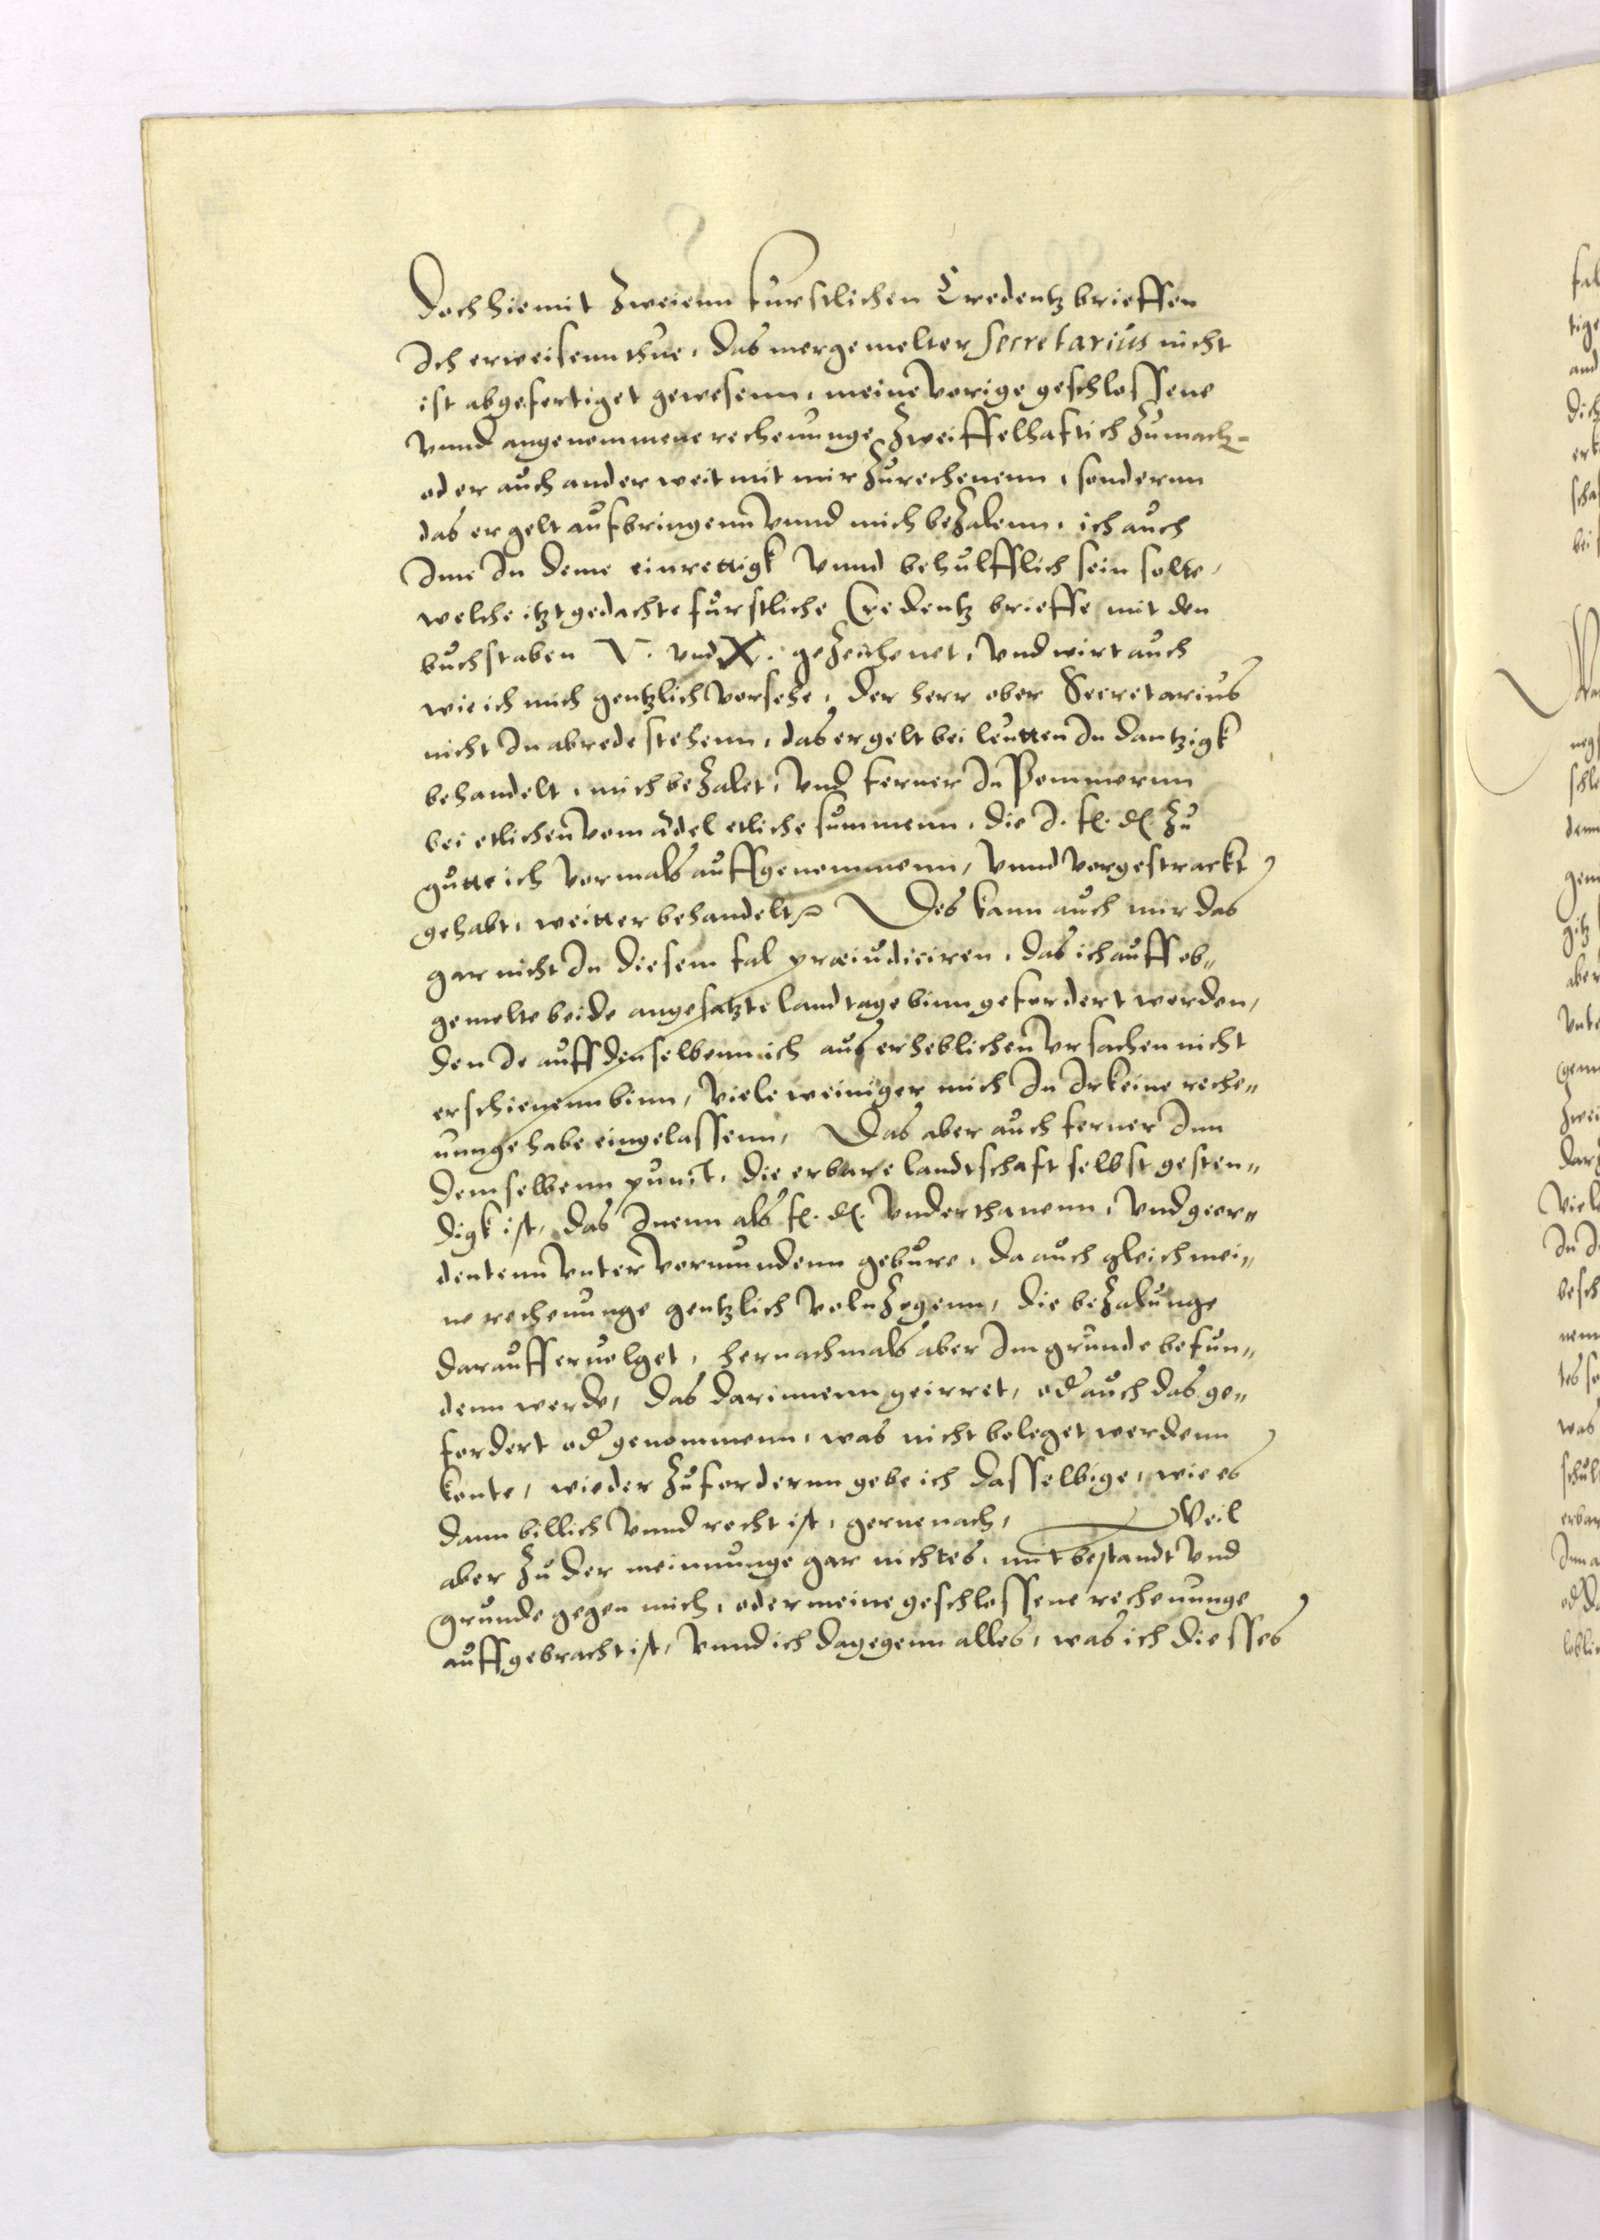 Doch hiemit zweienn furstlichen Credentz brieffen
Ich erweisenn thue, das mergemelter Secretarius nicht
ist abgefertiget gewesenn, meine vorige geschlossene
vnnd angenommene rechenunge zweiffelhaftich zumach-
oder auch anderweit mit mir zurechenenn, sondernn
das er gelt aufbringenn vnnd mich bezalenn, ich auch
Ime In deme einrettigk vnnd behulfflich sein solte,
welche itztgedachte furstliche Credentz brieffe mit den
buchstaben V. vnd X. gezeichenet, vnd wirt auch
wie ich mich gentzlich versehe, der herr ober Secretarius
nicht In abrede stehenn, das er gelt bei leutten In Dantzigk
behandelt, mich bezalet, vnd ferner In Pommernn
bei etlichen vom adel etliche summenn, die I. f. d. zu
gutte ich vormals auffgenommenn, vnnd vorgestrackt
gehabt, weitter behandelt. Des kann auch mir das
gar nicht In diesem fal præiudiciren, das ich auff ob„
gemelte beide angesatzte landtage binn gefordert worden,
den Je auff denselbenn ich aus erheblichen vrsachen nicht
erschienenn binn, viele weiniger mich In Irkeine reche„
nunge habe eingelassenn, Das aber auch ferner Inn
demselbenn punct, die erbare landtschaft selbst gesten„
digk ist, das Inenn als f. d. vnderthanenn, vnd geor„
dentenn vnter vormundenn gebure, da auch gleich mei„
ne rechenunge gentzlich volnzogenn, die bezalunge
darauff eruolget, hernachmals aber Im grunde befun„
denn werde, das darinnenn geirret, od auch das ge„
fordert od genommenn, was nicht beleget werdenn
konte, wieder zufordernn gebe ich dasselbige, wie es
dann billich vnnd recht ist, gerne nach, Weil
aber zu der meinnunge gar nichtes, mit bestandt vnd
grunde gegen mich, oder meine geschlossene rechenunge
auffgebracht ist, vnnd ich dagegenn alles, was ich diesses